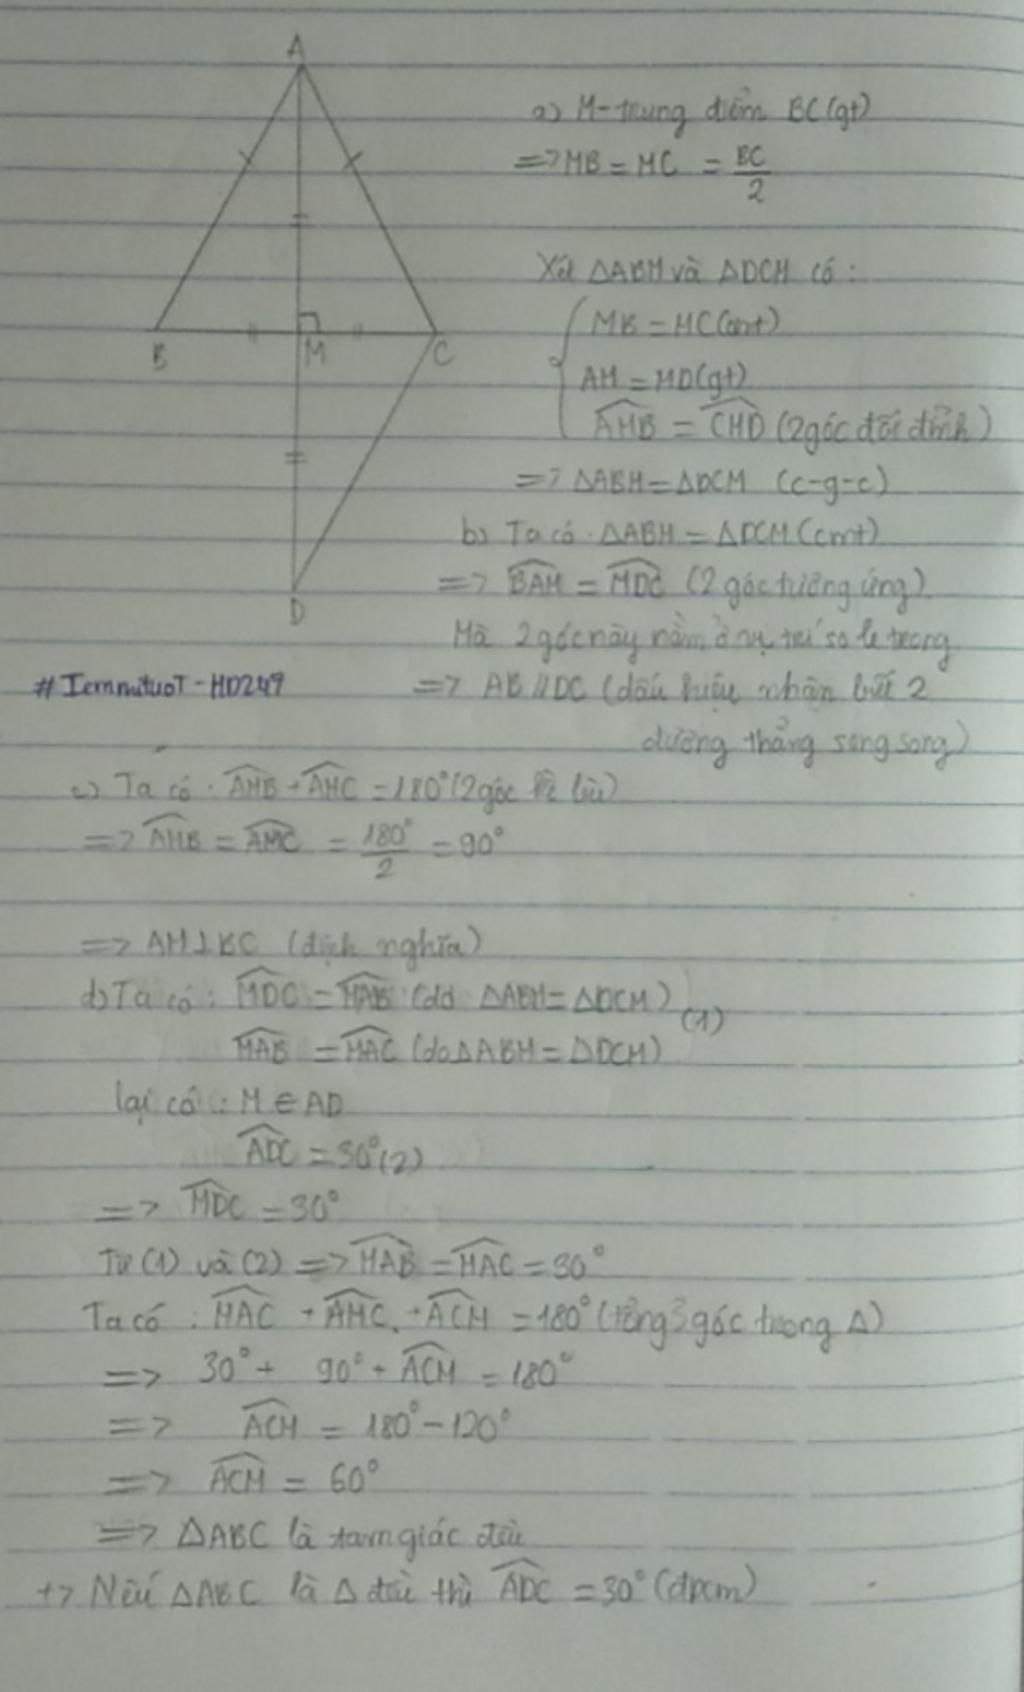 A
a) M-trung điểm BC(gt)
=> MB = MC = BC/2
Xét ΔABM và ΔDCM có :
MB = MC(cmt)
AM = MD(gt)
B
M
C
AMB = CMD (2 góc đối đỉnh)
=> ΔABM = ΔDCM (c-g-c)
b) Ta có . ΔABM = ΔDCM (cmt)
=> BAM = MDC (2 góc tương ứng)
D
Mà 2 góc này nằm ở vị trí so le trong
#IemnituoT-HD249
=> AB // DC (dấu hiệu nhận biết 2
đường thẳng song song)
c) Ta có : AMB + AMC = 180° (2 góc kề bù)
=> AMB = AMC = 180°/2 = 90°
=> AM⊥BC (định nghĩa)
d) Ta có : MDC = MAB (do ΔABM = ΔDCM)
(1)
MAB = MAC (do ΔABM = ΔDCM)
lại có : M ∈ AD
ADC = 30° (2)
=> MDC = 30°
Từ (1) và (2) => MAB = MAC = 30°
Ta có : MAC + AMC + ACM = 180° (tổng 3 góc trong Δ)
=> 30° + 90° + ACM = 180°
=> ACM = 180° - 120°
=> ACM = 60°
=> ΔABC là tam giác đều
+> Nếu ΔABC là Δ đều thì ADC = 30° (đpcm)